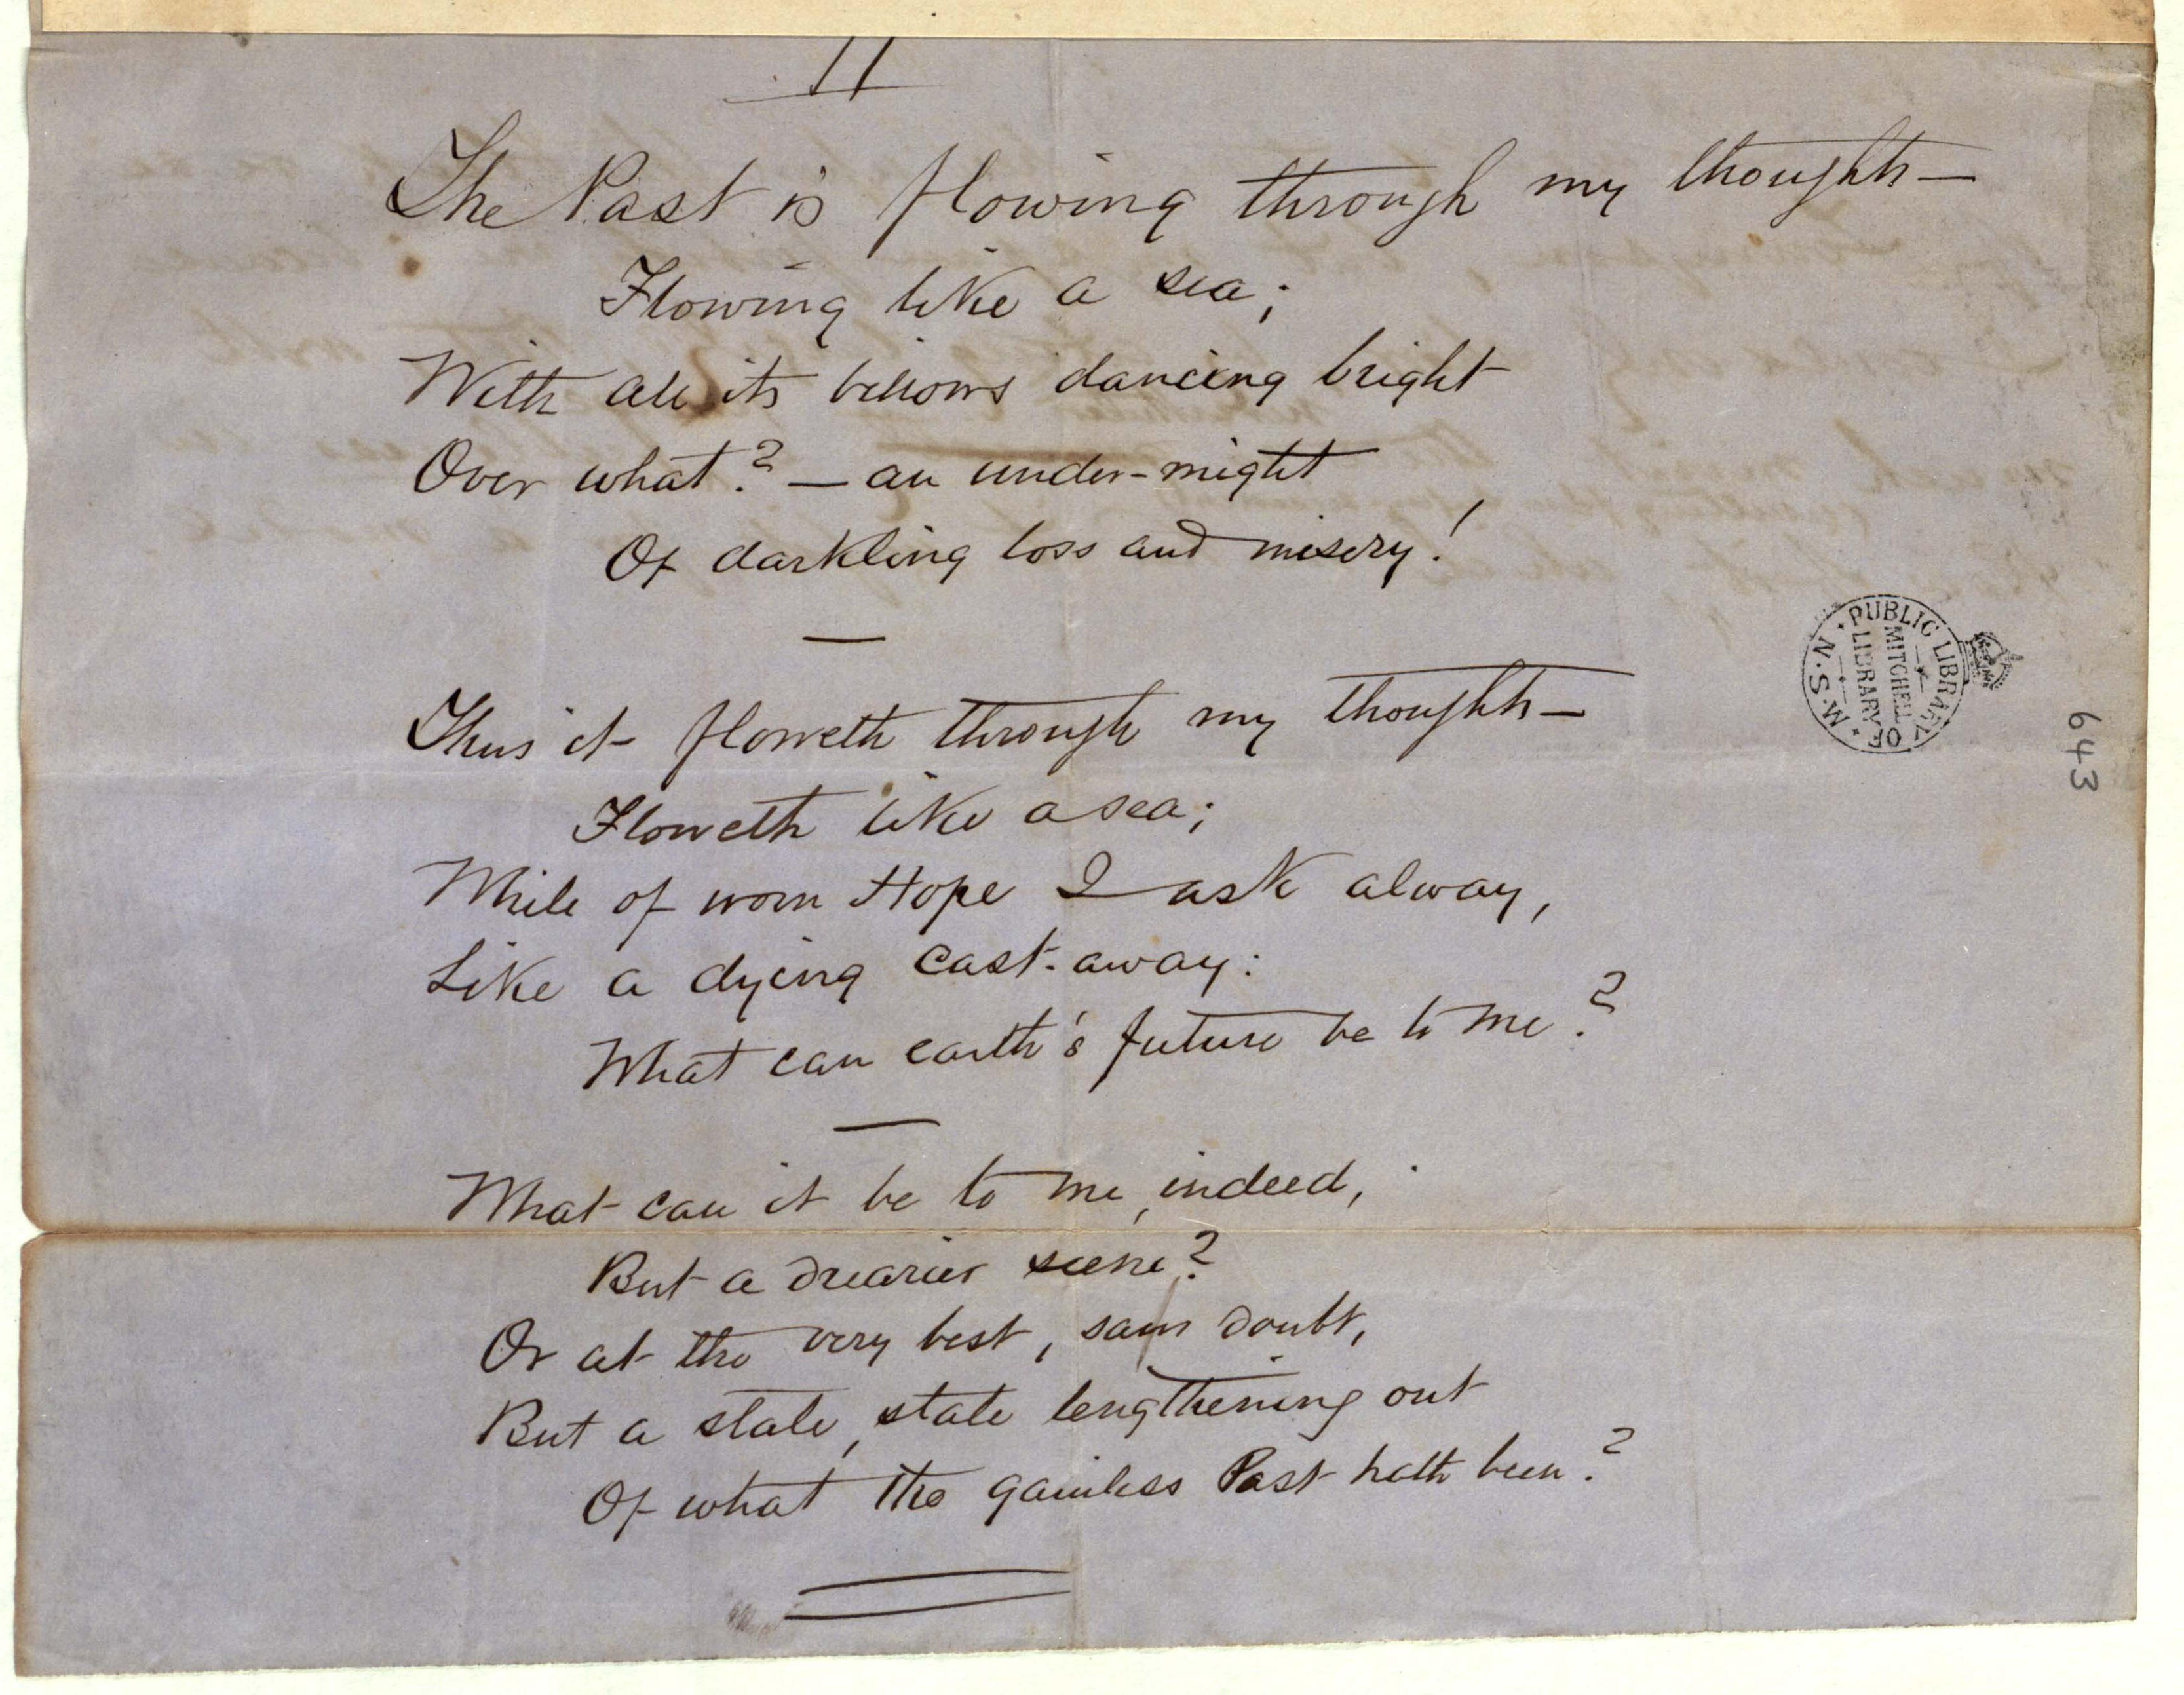 II
The Past is flowing through my thoughts—
Flowing like a sea;
With all its billows dancing bright
Over what? — an under-might
Of darkling loss and misery!
Thus it floweth through my thoughts—
Floweth like a sea;
While of worn Hope I ask alway,
Like a dying cast-away:
What can earth's future be to me?
What can it be to me, indeed,
But a drearier scene?
Or at the very best, sans doubt,
But a stale, stale lengthening out
Of what the gainless Past hath been?
PUBLIC LIBRARY OF N.S.W.
MITCHELL
LIBRARY
643